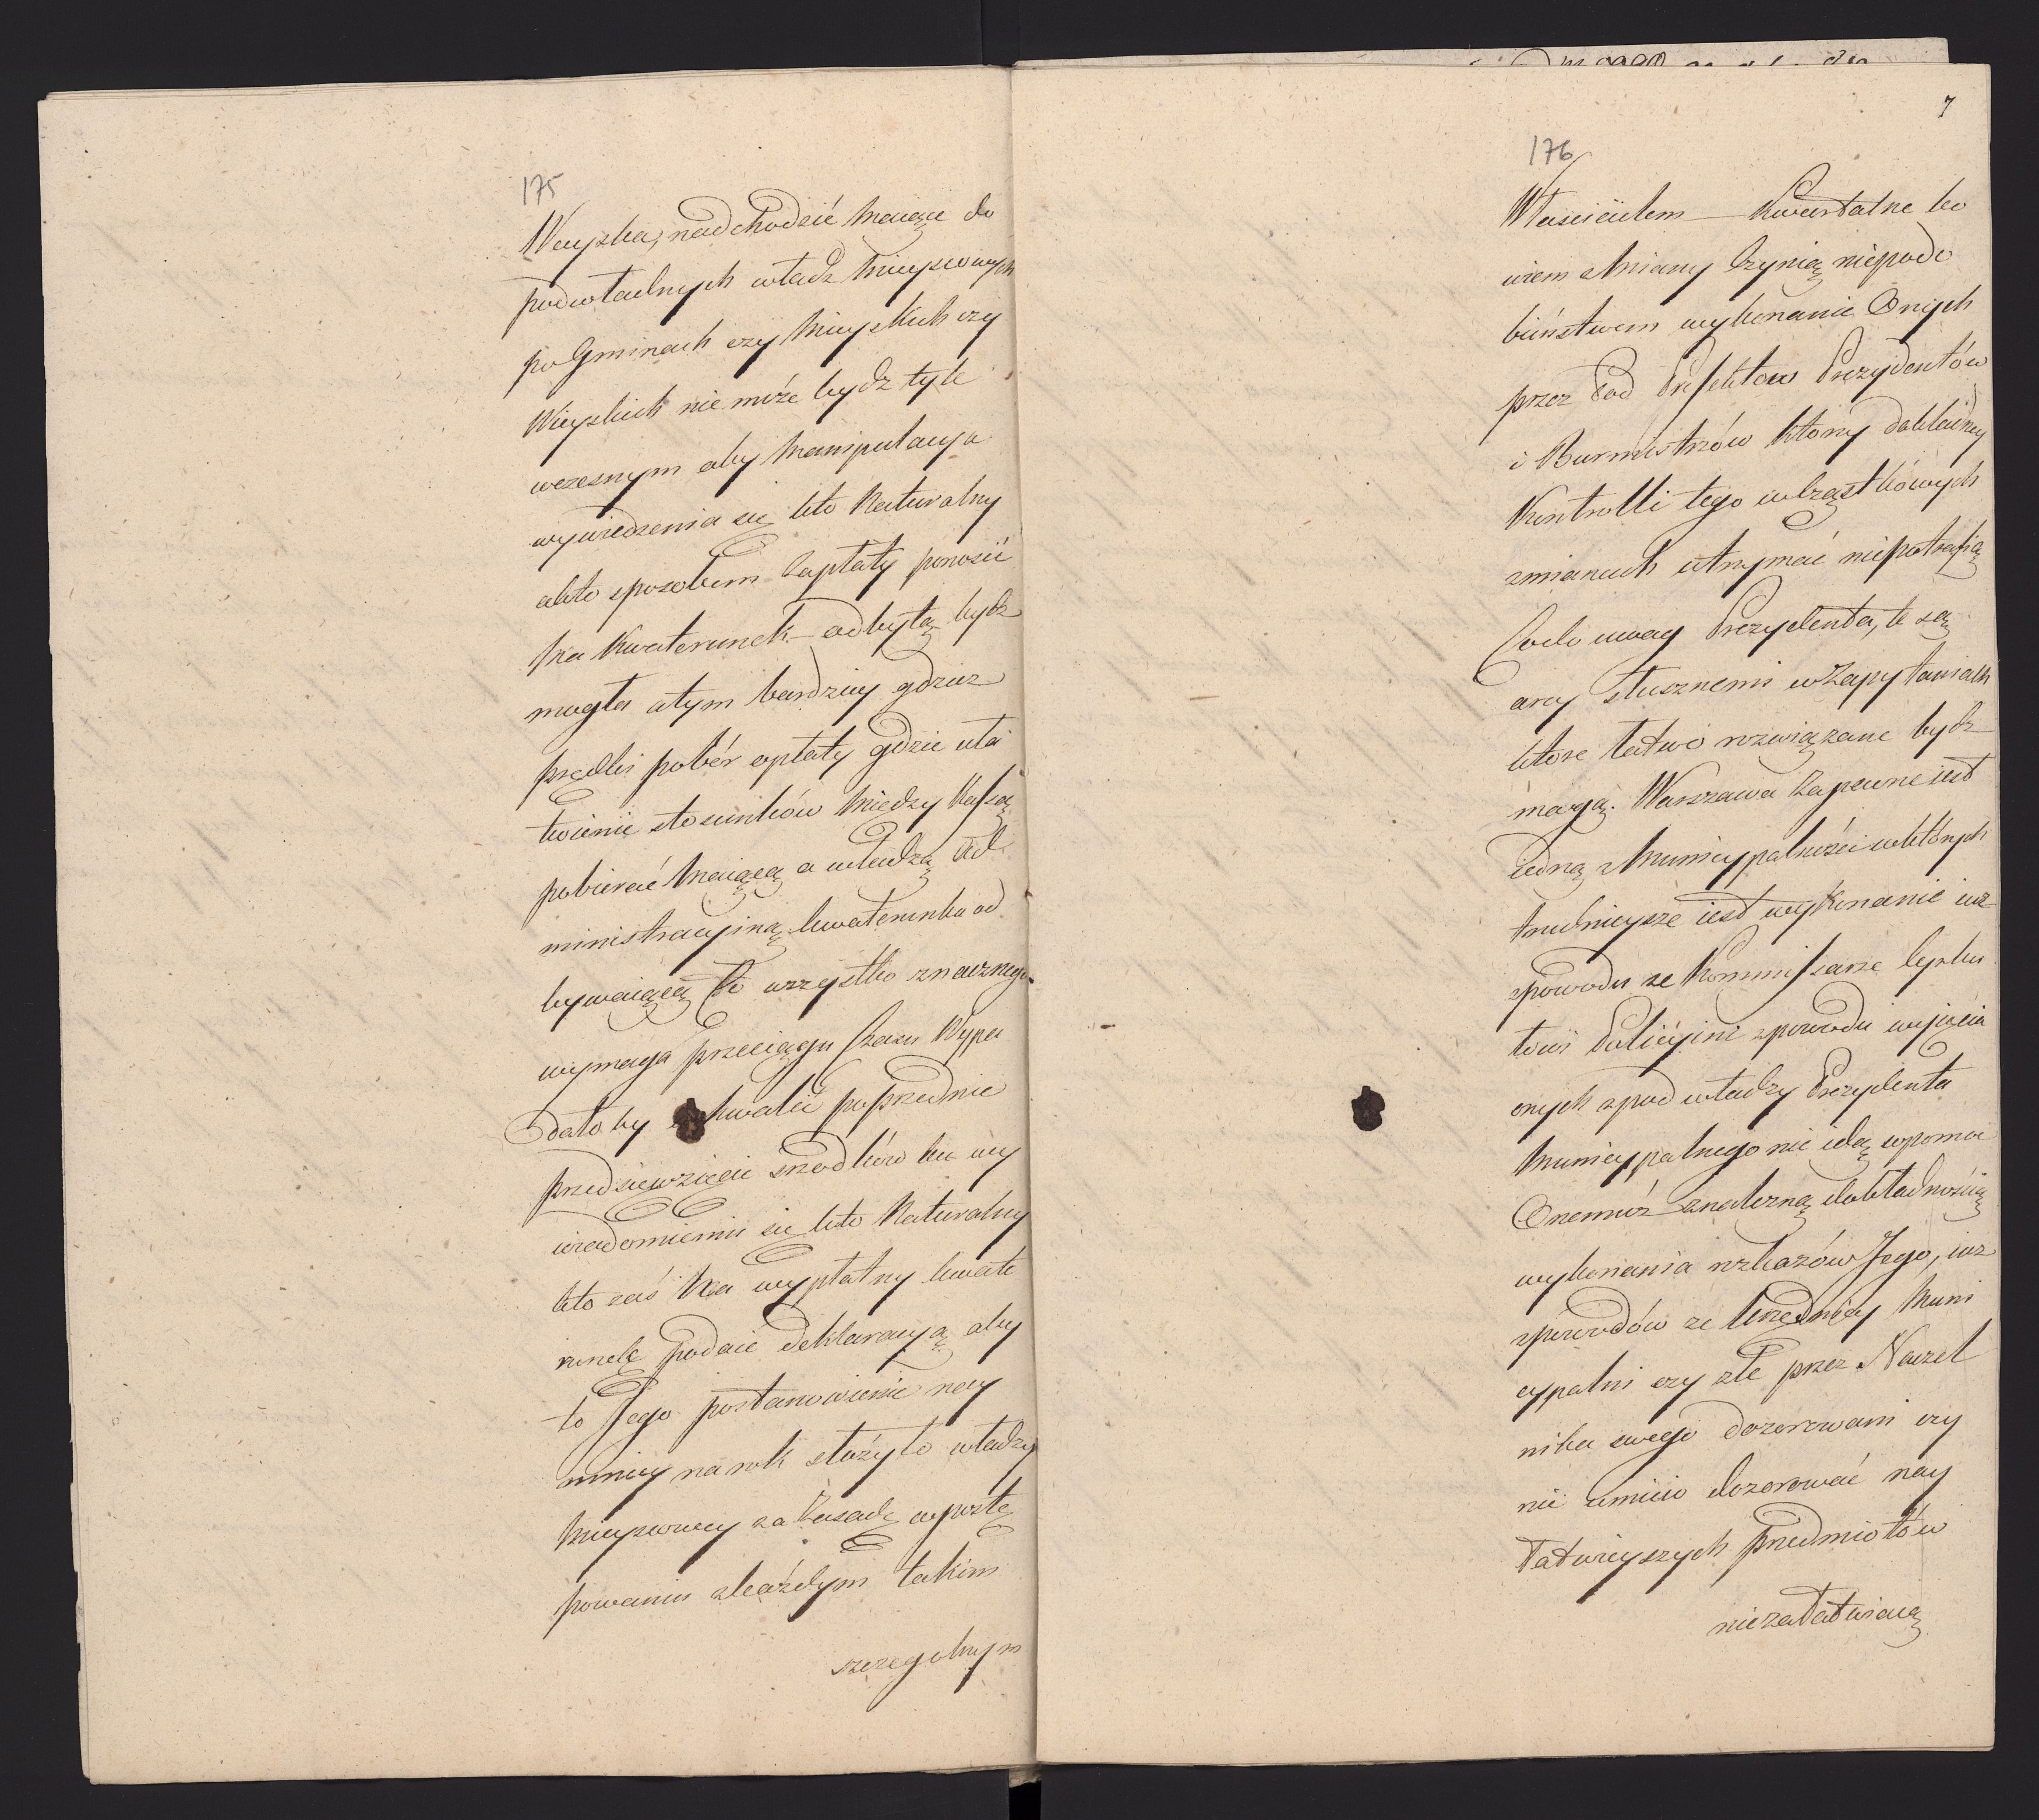 175
Woyska, nadchodzić maiące do
podwładnych władz mieyscowych
po Gminach czy mieyskich czy
Wieyskich nie może bydz tyle
wczesnym aby manipulacya
wywiedzenia się kto Naturalny
a kto sposobem zapłaty ponosić
ma Kwaterunek odbytą bydz
mogła a tym bardziey gdzież
prędki pobór opłaty gdzie uła
twienie stosunków między Kassą
pobierać maiącą a władzą Ad
ministracyiną kwaterunku od
bywaiącą To wszystko znacznego
wymaga przeciągu Czasu Wypa
dało by chwalić poprzednie
przedsięwzięcie srzodków ku uy
wiadomieniu się kto Naturalny
kto zaś Na wypłatny kwate
runek podaie deklaracyą aby
to Jego postanowienie nay
mniey na rok służyło władzy
mieyscowey za Zasadę w postę
powaniu z każdym takim
szczegolnym
7
176
Właścicielem — Kwartalne bo
wiem zmiany czynią niepodo
bieństwem wykonanie Onych
przez Pod Prefektow Prezydentów
i Burmistrzów ktorzy dokładney
Kontrolli tego w cząstkówych
zmianach utrzymać niepotrafią
Co do uwag Prezydenta, te są
arcy słusznemi w Zapytaniach
ktore łatwo rozwiązane bydz
mogą. Warszawa zapewne iest
iedną z Municypalności w których
trudnieysze iest wykonanie iuz
zpowodu ze Kommissarze Cyrku
łowi Policyini zpowodu wyjęcia
onych zpod władzy Prezydenta
Municypalnego nie idą w pomoc
Onemuż znaleźną dokładnością
wykonania rozkazów Jego, iuz
zpowodów ze Urzędnicy Muni
cypalni czy źle przez Naczel
nika swego dozorowani czy
nie umieio dozorować nay
łatwieyszych przedmiotów
niezałatwiaią